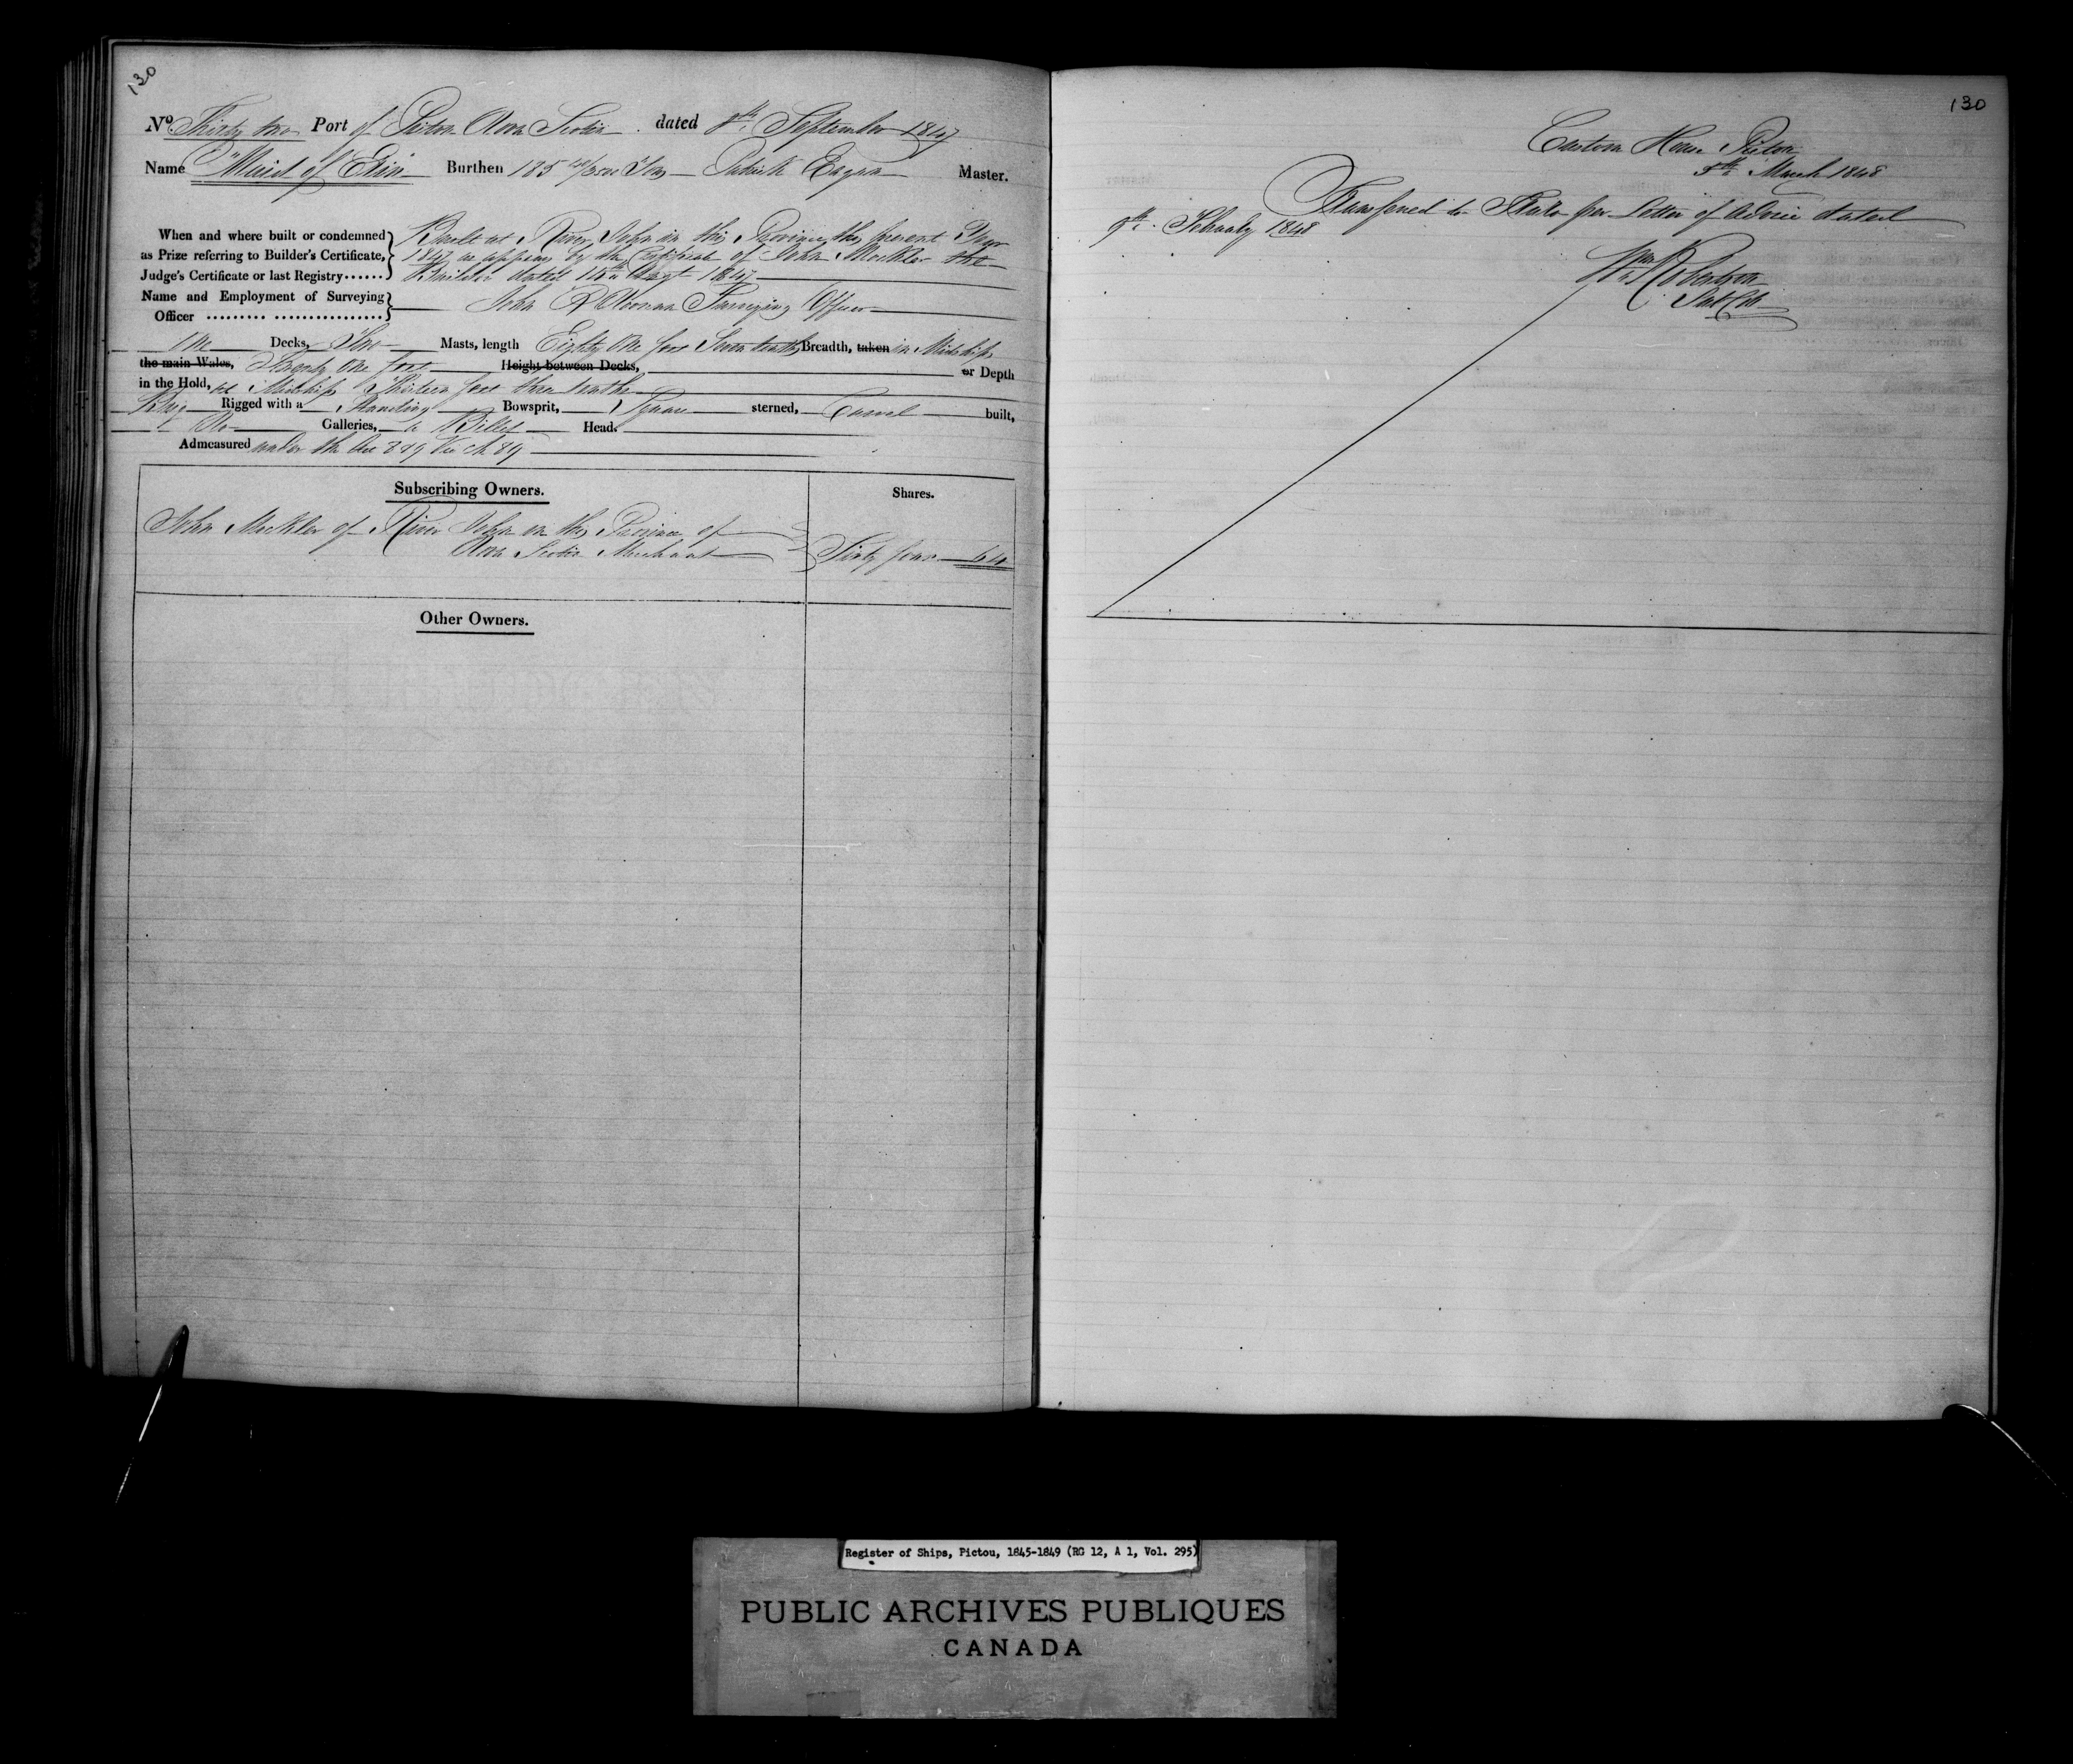 130
No Thirty two Port of Pictou Nova Scotia dated 8th September 1847
Name "Maid of Erin" Burthen 135 Tons Patrick Eagan Master.
When and where built or condemned
as Prize referring to Builder's Certificate,
Judge's Certificate or last Registry......
Built at River John in this Province this present Year
1847 as appears by the Certificate of John Mockler the
Builder dated Augt 1847
Name and Employment of Surveying
Officer ......... ................
John Surveying Officer
One Decks, Two Masts, length Eighty One feet Seven tenths Breadth, taken in Midships
the main Wales, Twenty One feet Height between Decks, or Depth
in the Hold, at Midships Thirteen feet three tenths
Brig Rigged with a Standing Bowsprit, Square sterned, Carvel built,
No Galleries, a Billet Head.
Admeasured under the Act 8 & 9 Vic ch 89
Subscribing Owners.
Shares.
John Mockler of River John in the Province of
Nova Scotia Merchant
Sixty four 64
Other Owners.
130
Custom House Pictou
8th March 1848
Transferred to per Letter of Advice dated
9th February 1848
Wm Robertson
Register of Ships, Pictou, 1845-1849 (RG 12, A 1, Vol. 295)
PUBLIC ARCHIVES PUBLIQUES
CANADA